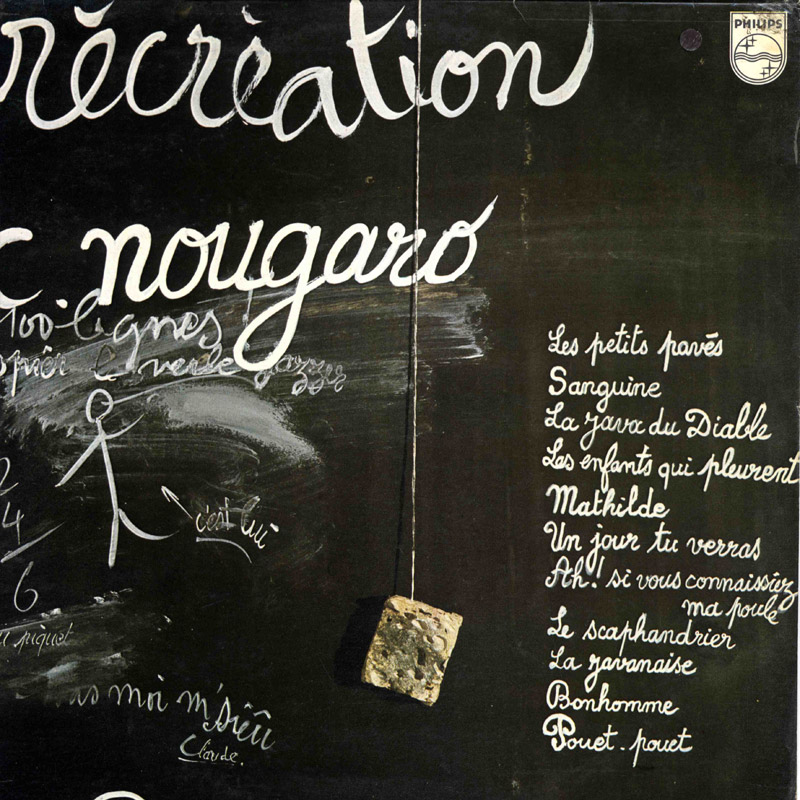 récréation
PHILIPS
nougaro
100 lignes
le verbe gazzer
c'est lui
2
4
6
piquet
moi m'siêu
Claude.
Les petits pavés
Sanguine
La java du Diable
Les enfants qui pleurent
Mathilde
Un jour tu verras
Ah! si vous connaissiez
ma poule
Le scaphandrier
La javanaise
Bonhomme
Pouet-pouet